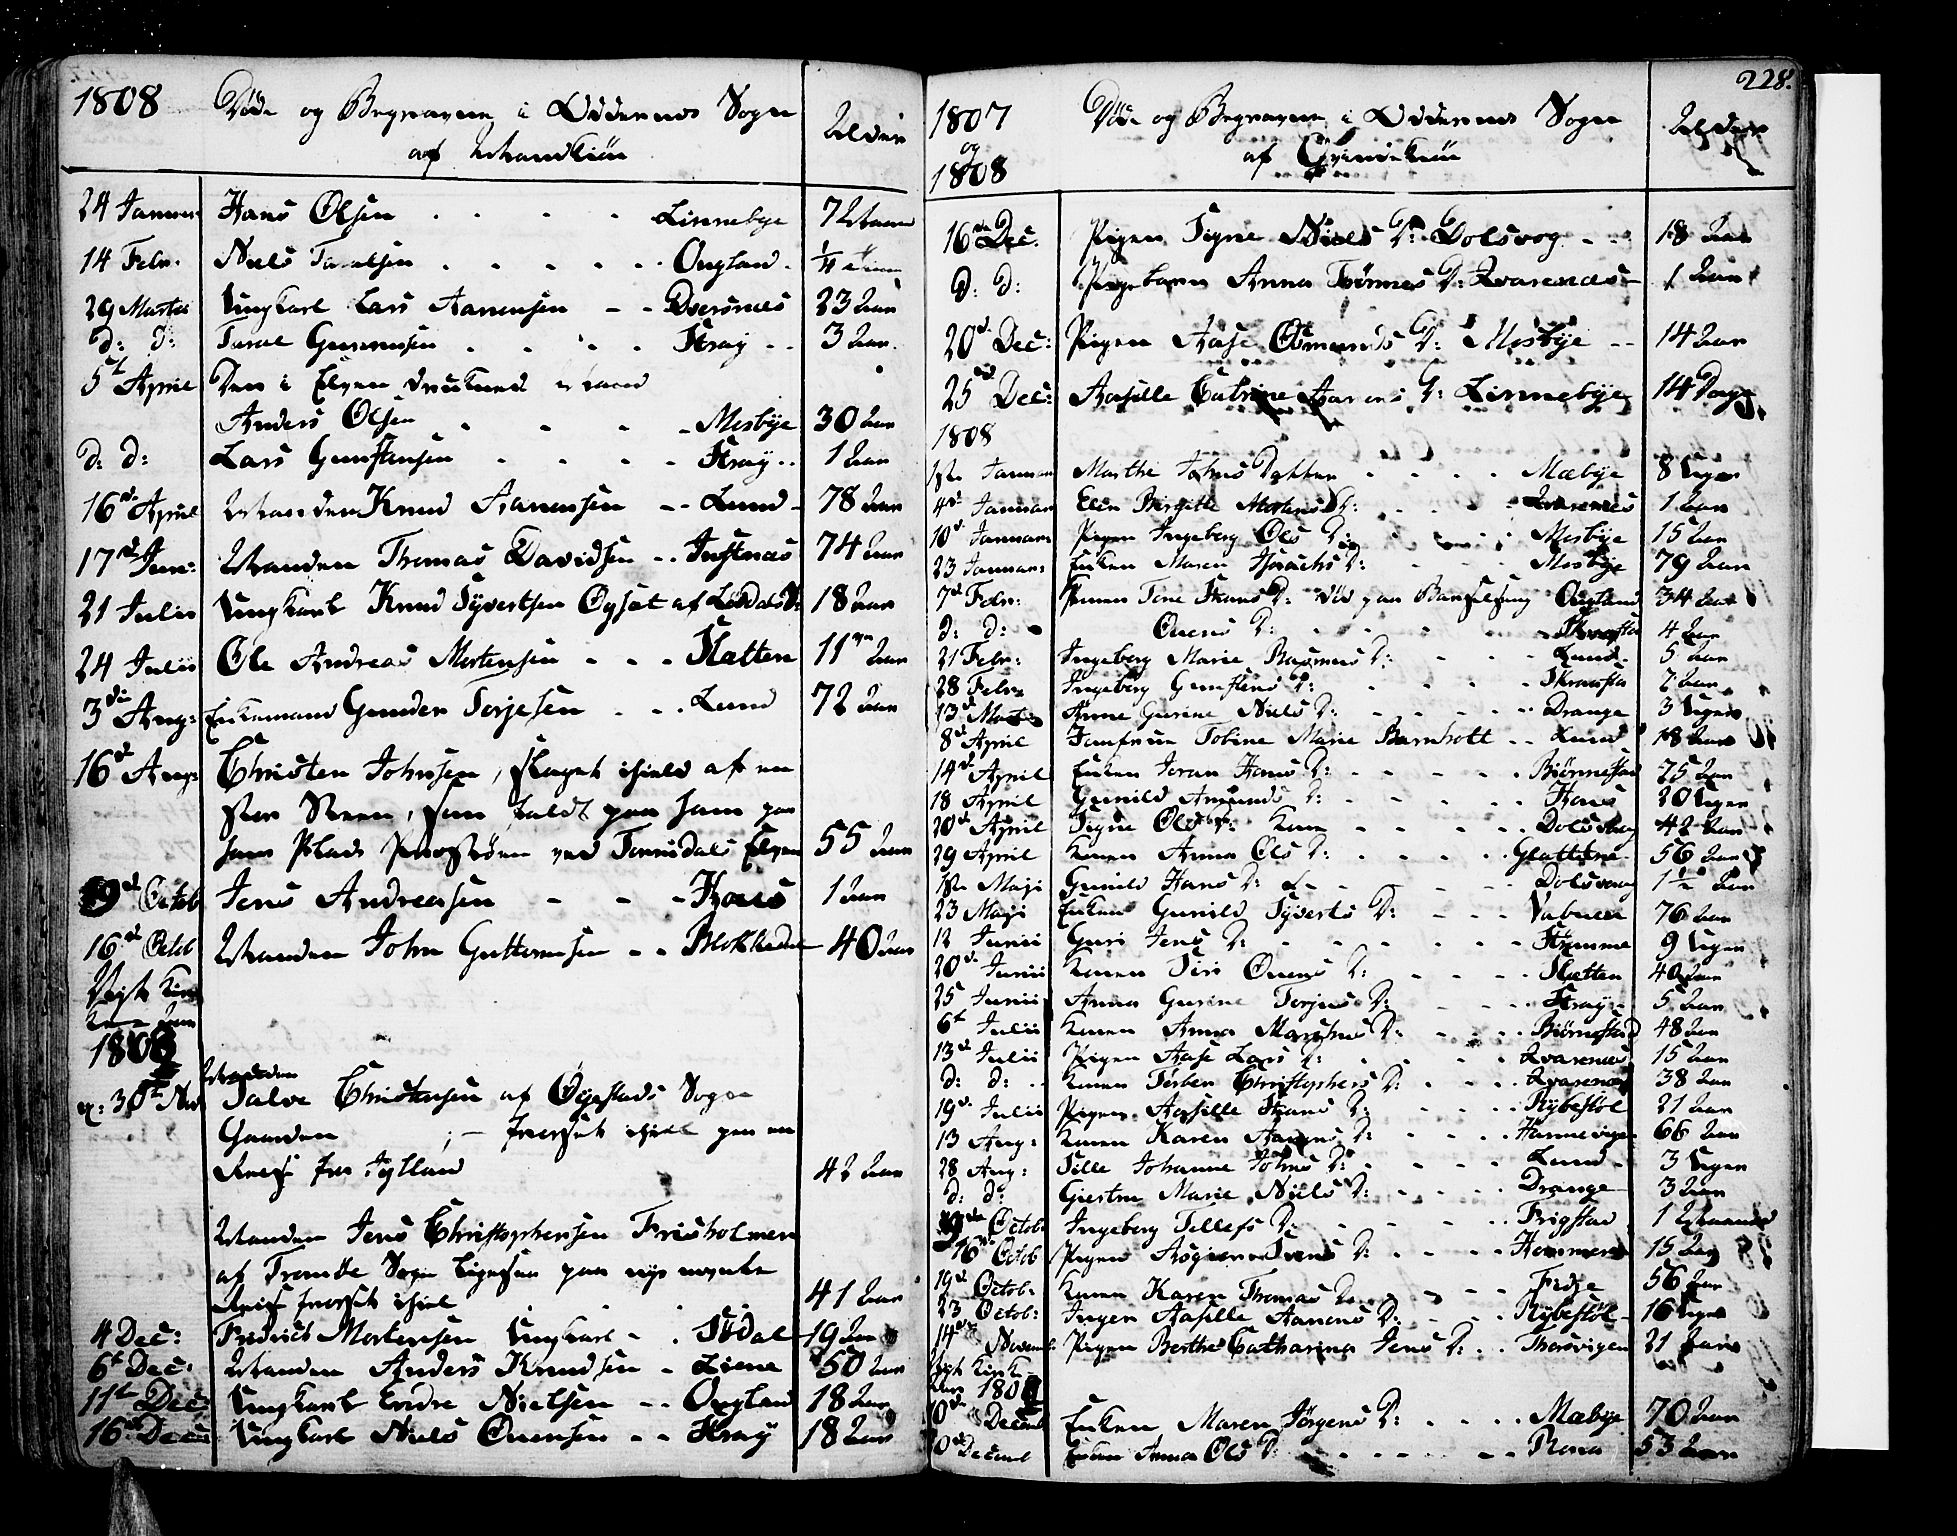 1808 Døde og Begravne i Oddernes Sogn Alder
af Mandkiön
24 Januar Hans Olsen Linnebye 7 Maaned
14 Febr. Niels Taralsen Ougland 1/4
29 Martii Ungkarl Lars Aanensen Dversnes 23 Aar
d: d: Taral Gunnersen Stray 3 Aar
5t April Den i Elven druknede Mand
Anders Olsen Mosbye 30 Aar
d: d: Lars Gunstensen Stray 1 Aar
16d April Manden Knud Aanensen Lund 78 Aar
17d Jun: Manden Thomas Davidsen Justnæs 74 Aar
21 Julii Ungkarl Knud Syvertsen af 18 Aar
24 Julii Ole Andreas Mortensen Slætten 11 Aar
3die Aug: Enkemand Gunder Terjesen Lund 72 Aar
16d Aug: Christen Johnsen, slaget ihiel af en
stor Steen, som faldt paa ham paa
hans Plads ved Tonsdals Elven 55 Aar
Octob Jens Andreasen Haus 1 Aar
16d Octob Manden John Guttormsen 40 Aar
Nyt Kirke
Aar
180
Manden
30t Nov Salve Christensen af Øyestads Sogn
Gaarden ; frosset ihiel paa en
Reise fra Jylland 42 Aar
Manden Jens Christophersen Frisholmen
af Tromøe Sogn paa
Reise frosset ihiel 41 Aar
4 Dec: Fredrich Mortensen Ungkarl Sødal 19 Aar
6t Dec: Manden Anders Knudsen Liene 50 Aar
11t Dec: Ungkarl Endre Nielsen Ougland 18 Aar
16 Dec: Ungkarl Niels Ouensen Stray 18 Aar
228.
1807 Døde og Begravne i Oddernes Sogn Alder
og af Qvindekiön
1808
16de Dec: Pigen Signe Niels D: Dolsvog 18 Aar
d: d: Pigebarn Anna Tønnes D: Qvarenæs 1 Aar
20d Dec: Pigen Aase Osmunds D: Mosbye 14 Aar
25de Dec: Aasille Catrine Aanens D: Linnebye 14 Dage
1808
1ste Januar Marthe Johns Datter Mæbye 8 Uger
4d Januar Elen Birgitte Mortens D: Qvarenes 1 Aar
10d Januar Pigen Ingeborg Ols D: Mosbye 15 Aar
23 Januar: Enken Maren D: Mosbye 79 Aar
7d Febr: Konen Tone Hans D: død paa Barselseng Ougland 34 Aar
d: d: Ouens D: 4 Aar
21 Febr: Ingeborg Marie Rasmus D: Lund 5 Aar
28 Febr: Ingeborg Gunstens D: 2 Aar
13d Mart: Anne Gurine Niels D: Drange 3 Uger
8d April Jomfrue Tobine Marie Lund 18 Aar
14d April Enken Joran Hans D: Biørnestad 75 Aar
18 April Gunild Amunds D: Haus 20 Uger
20d April Signe Ols D: Kone Dolsvog 42 Aar
29 April Konen Anna Ols D: 56 Aar
1ste Maji Gunild Hans D: Dolsvog 1 1/2 Aar
23 Maji Enken Gunild Syverts D: 76 Aar
12 Junii Guri Jens D: Strømme 9 Uger
20d Junii Konen Siri Ouens D: Slætten 40 Aar
25 Junii Anna Gurine Torjus D: Stray 5 Aar
6t Julii Konen Anna D: Biørnestad 48 Aar
13d Julii Pigen Aase Lars D: Qvarenes 15 Aar
d: d: Konen Torbor Christophers D: Qvarenes 38 Aar
19d Julii Pigen Aasille Hans D: Rybestøl 21 Aar
13 Aug: Konen Karen Aanens D: Hannevigen 66 Aar
28 Aug: Sille Johanne Johns D: Lund 3 Uger
d: d: Giertru Marie Niels D: Drange 3 Aar
Octob Ingeborg Tellefs D: Frigstad 1 Maaned
16 Octob Pigen Svens D: Hommern 15 Aar
19d Octob: Konen Karen Thomas D: Fidje 56 Aar
23 Octob: Ingen Aasille Aanens D: Rybestøl 16 Uger
14 Novemb Pigen Berthe Catharina Jens D: Thorsvigen 21 Aar
Nyt Kirke
Aar 180
10d Decemb Enken Maren Jørgens D: Mæbye 70 Aar
Decemb Enken Anna Ols D: Rona 53 Aar